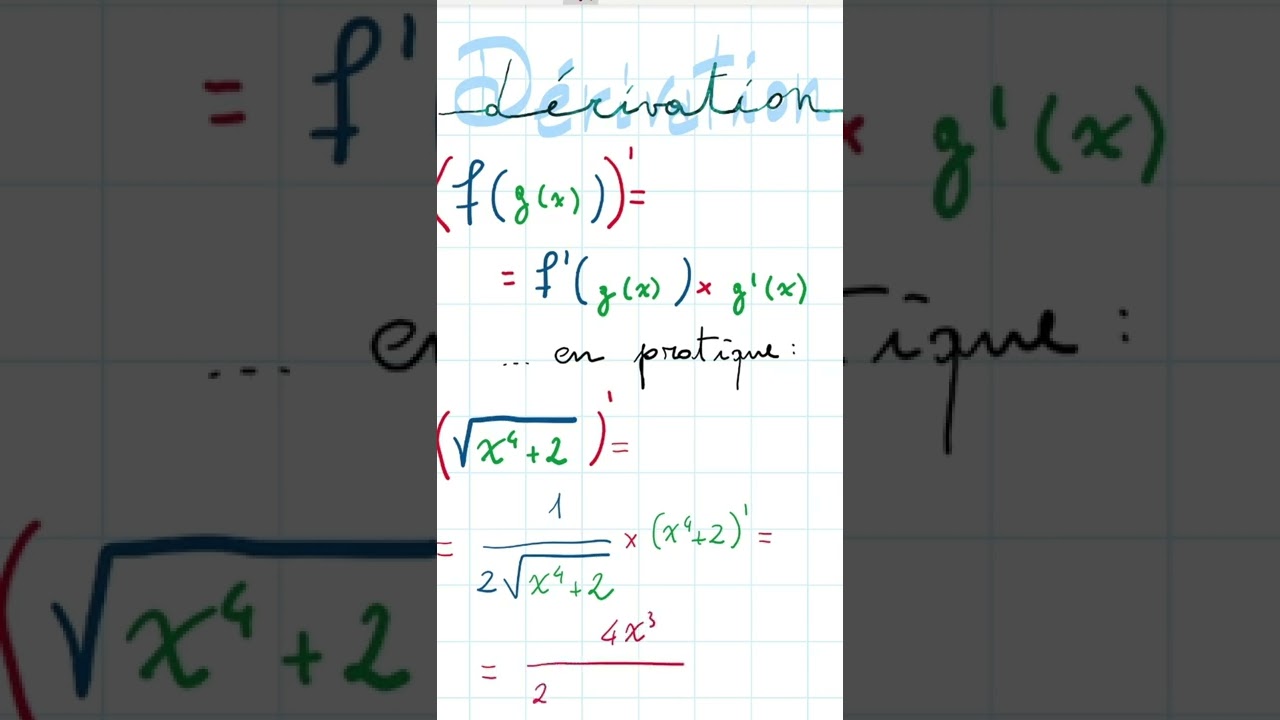 Dérivation
(f(g(x)))' =
= f'(g(x)) × g'(x)
... en pratique :
(√x⁴+2)' =
= 1
2√x⁴+2 × (x⁴+2)' =
= 4x³
2